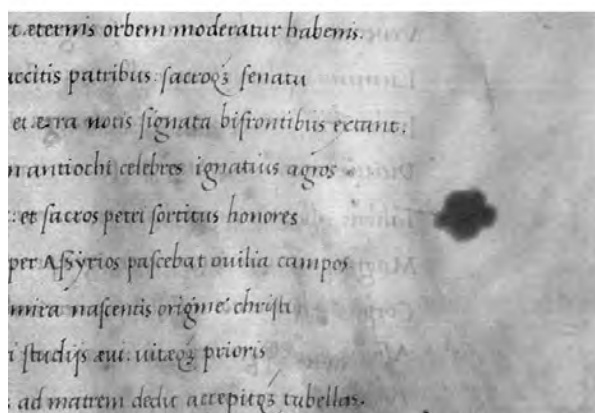 et æternis orbem moderatur habenis.
accitis patribus: sacroqȝ senatu
et æra notis signata bifrontibus extant:
antiochi celebres ignatius agros
et sacros petri sortitus honores
per Assyrios pascebat ouilia campos.
mira nascentis origine christi
studijs æui: uitæqȝ prioris
ad matrem dedit accepitqȝ tabellas.